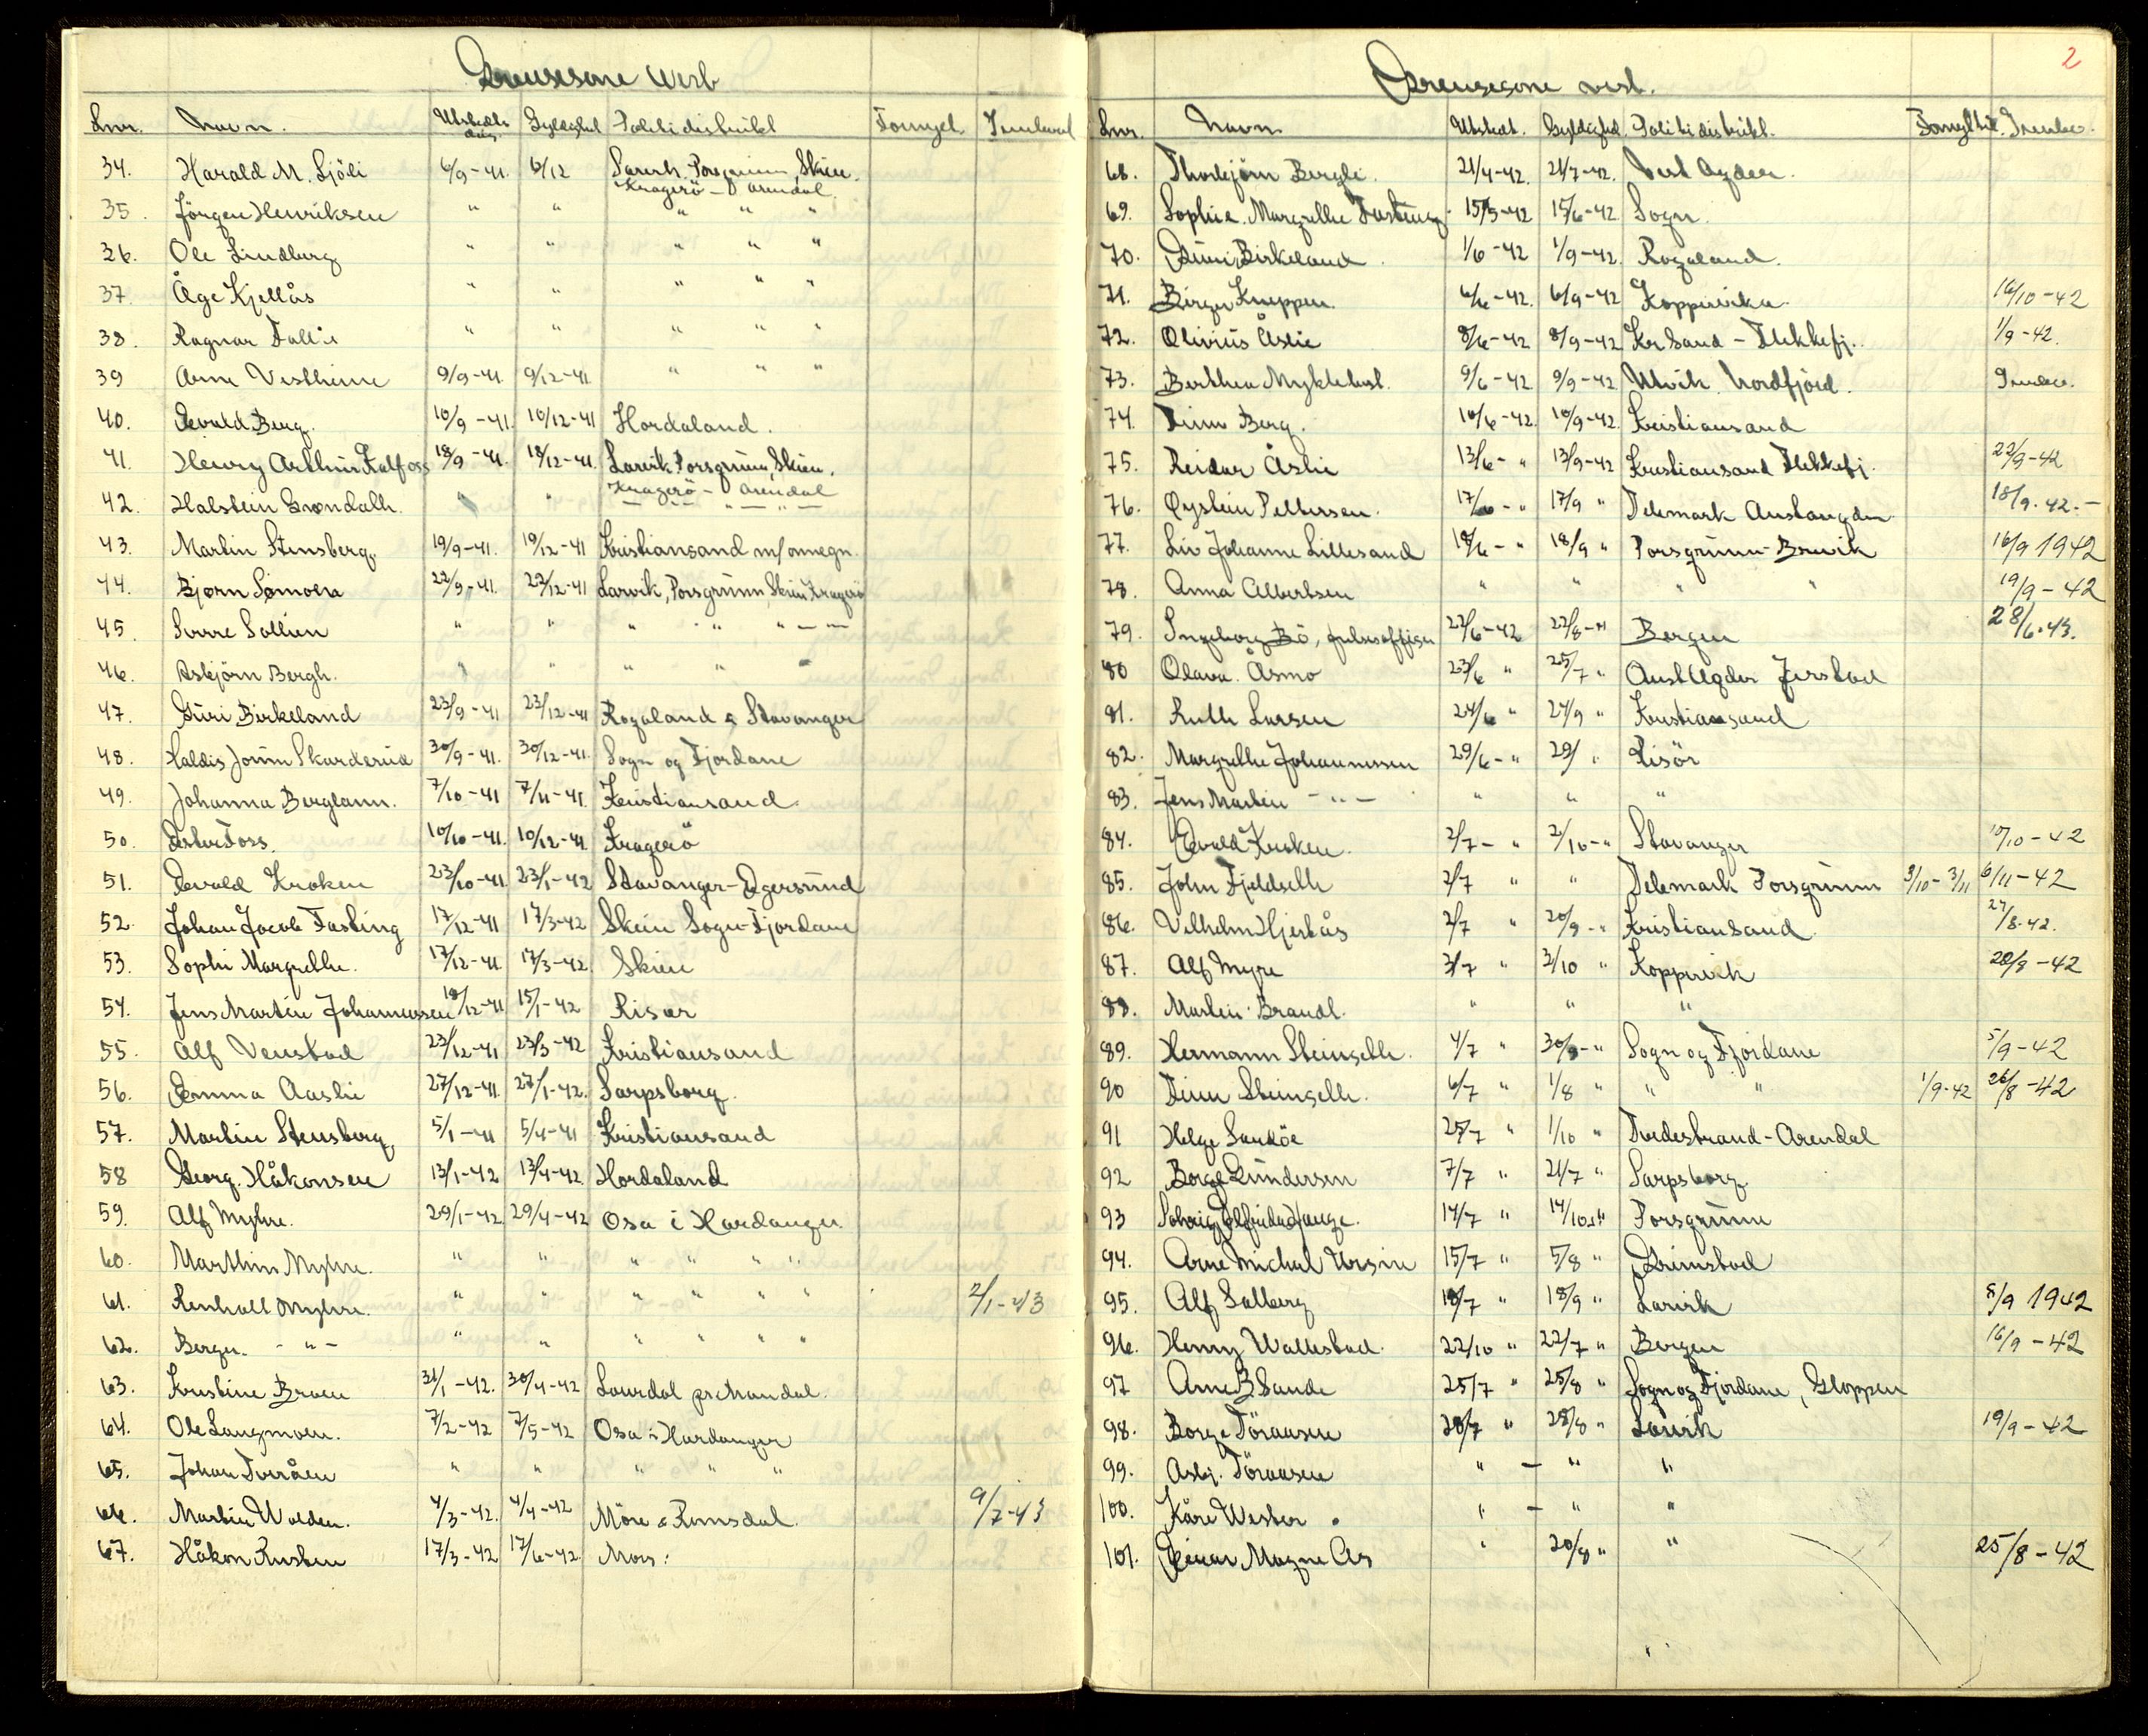 Grensesone Vest
Lnr. Navn. Utstedt Gyldighet Politidistrikt Fornyet Innlevert
34. Harald M. Sjöli 6/9-41. 6/12 Larvik, Porsgrunn, Skien.
Kragerö - Arendal
35. Jörgen Henriksen " " " " "
36. Ole Lindberg " " " " "
37. Åge Kjellås " " " " "
38. Ragnar Follie " " " " "
39 Arne Vestheim 9/9-41 9/12-41 " " "
40. Evald Berg. 10/9-41. 10/12-41 Hordaland.
41. Henry Arthur Kalfoss 18/9-41. 18/12-41. Larvik, Porsgrunn, Skien.
Kragerö - Arendal
42. Halstein Grøndalh. " " — " — " —
43. Martin Stensberg. 19/9-41. 19/12-41 Kristiansand m/omegn.
44. Bjørn Sømoen 22/9-41. 22/12-41 Larvik, Porsgrunn, Skien Kragerö
45. Sverre Sollien " " " " " — " —
46. Asbjörn Bergh. " " " " "
47. Guri Birkeland 23/9-41 23/12-41 Rogaland & Stavanger
48. Haldis Jorunn Skarderud 30/9-41. 30/12-41. Sogn og Fjordane
49. Johanna Berglann. 7/10-41 7/11-41. Kristiansand.
50. Ester Foss. 10/10-41. 10/12-41. Kragerö
51. Evald Kroken 23/10-41. 23/1-42 Stavanger-Egersund
52. Johan Jacob Fasting 17/12-41 17/3-42 Skien Sogn-Fjordane
53. Sophi Margrethe. 17/12-41. 17/3-42. Skien
54. Jens Martin Johannessen 18/12-41 15/1-42 Risør
55. Alf Venstad 23/12-41 23/3-42 Kristiansand
56. Emma Aaslie 27/12-41. 27/1-42. Sarpsborg.
57. Martin Stensberg. 5/1-41 5/4-41 Kristiansand
58 Georg. Håkonsen 13/1-42 13/4-42. Hordaland
59. Alf Myhre. 29/1-42. 29/4-42 Osa i Hardanger.
60. Marthin Myhre. " " " " " "
61. Renhall Myhre. " " " " " " 2/1-43
62. Berger. - " - " " " " " "
63. Kristine Broen 31/1-42. 30/4-42 Laudal pr Mandal.
64. Ole Langmoen. 7/2-42 7/5-42 Osa i Hardanger
65. Johan Tveråen " " " " "
66. Martin Wolden. 4/3-42. 4/4-42 Möre & Romsdal. 9/7-43
67. Håkon Rusten 17/3-42 17/6-42. Mois:
2
Grensesone vest.
Lnr. Navn Utstedt. Gyldighet Politidistrikt. Fornyet til. Innlev.
68. Thorbjörn Bergli. 21/4-42. 21/7-42. Vest Agder.
69. Sophie Margrethe Fasting 15/5-42 15/6-42. Sogn.
70. Guri Birkeland. 1/6-42 1/9-42. Rogaland.
71. Birger Kneppen. 6/6-42. 6/9-42 Koppervika. 16/10-42
72. Olivius Åslie 8/6-42 8/9-42 Kr Sand - Flekkefj. 1/9-42.
73. Berthea Myklebust. 9/6-42. 9/9-42. Utvik Nordfjord. Innlev.
74. Finn Berg. 10/6-42. 10/9-42. Kristiansand
75. Reidar Åslie 13/6- " 13/9-42 Kristiansand Flekkefj. 22/9-42
76. Øystein Pettersen. 17/6- " 17/9 " Telemark Austangden 18/9.42.-
77. Liv Johanne Lillesand 18/6- " 18/9 " Porsgrunn-Brevik 16/9 1942
78. Anna Albertsen " " " " 19/9-42
79. Ingeborg Bö, 22/6-42 22/8-" Bergen 28/6.43.
80 Olava. Åsmo 23/6 " 25/7 " Aust Agder Jerstad
81. Ruth Larsen 24/6 " 24/9 " Kristiansand
82. Margrethe Johannessen 29/6- " 29/ " Risör
83. Jens Martin - " - " " "
84. Evald Kroken. 2/7- " 2/10-" Stavanger 10/10-42
85. John Fjeldseth 2/7 " " Telemark Porsgrunn 3/10-3/11 6/11-42
86. Vilhelm Hjertås 2/7 " 20/9-" Kristiansand 24/8-42.
87. Alf Myre 3/7 " 3/10 " Koppervik 20/8-42
88. Martin Brandl. " " "
89. Hermann Steinseth. 4/7 " 30/9-" Sogn og Fjordane 5/9-42
90 Finn Steinseth. 6/7 " 1/8 " " " 1/9-42 26/8-42
91 Helge Sandöe 25/7 " 1/10 " Tvedestrand-Arendal
92 Borge Gundersen 7/7 " 21/7 " Sarpsborg.
93 Solveig Alfrida Hauge. 14/7 " 14/10 " Porsgrunn
94. Arne Michal Ursin 15/7 " 5/8 " Grimstad
95. Alf Solberg 18/7 " 18/9 " Larvik 8/9 1942
96. Henny Wallestad. 22/10 " 22/7 " Bergen 16/9-42
97 Arne B Sande 25/7 " 25/8 " Sogn og Fjordane, Gloppen
98. Borge Töraasen 28/7 " 28/8 " Larvik 19/9-42
99. Asbj. Töraasen " - " "
100. Kåre Wester . " - " "
101. Einar Magne As " 20/8 " " 25/8-42